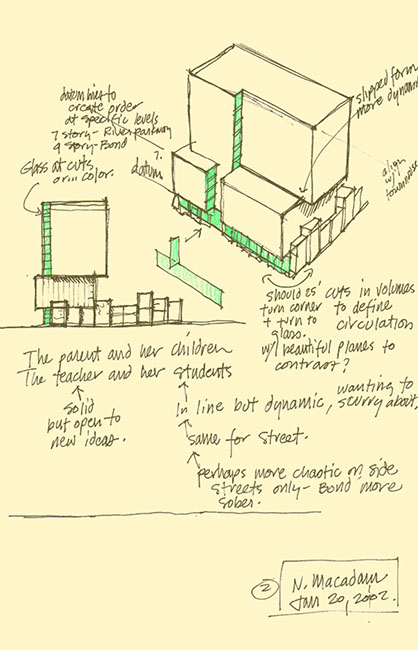 datum lines to
create order
at specific levels
7 story - River parkway
4 story - Bond
Glass at cuts
or in color.
7.
datum
slipped form
more dynamic
align
w/
townhouse
should 25' cuts in volumes
turn corner to define
+ turn to circulation
glass.
w/ beautiful planes to
contrast?
The parent and her children
The teacher and her students
solid
but open to
new ideas.
in line but dynamic, wanting to
scurry about,
same for street.
perhaps more chaotic on side
streets only - Bond more
sober.
2
N. Macadam
Jan 20, 2002.